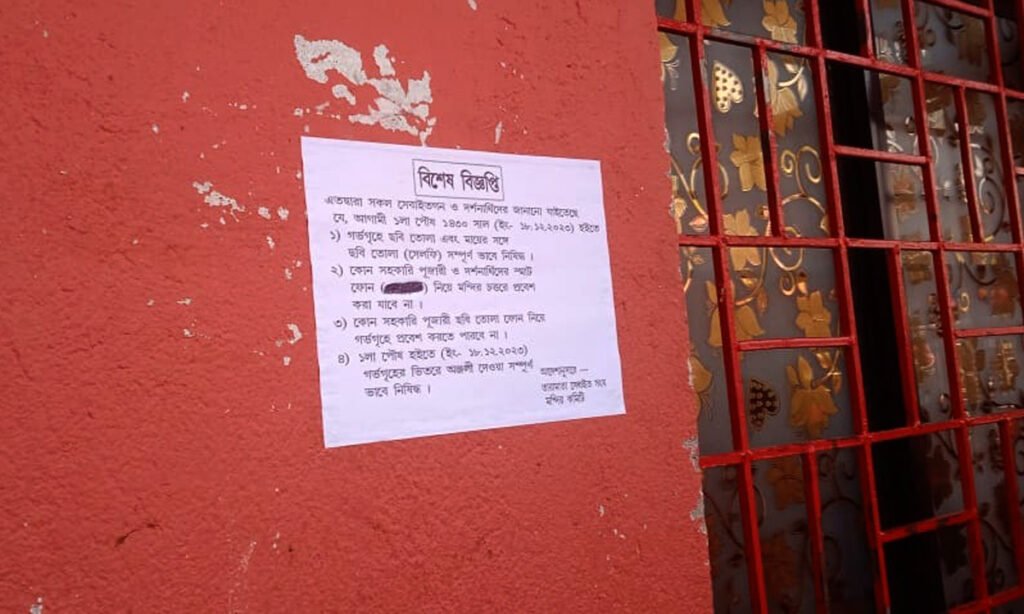 বিশেষ বিজ্ঞপ্তি
এতদ্বারা সকল সেবাইতগন ও দর্শনার্থিদের জানানো যাইতেছে
যে, আগামী ১লা পৌষ ১৪৩০ সাল (ইং- ১৮.১২.২০২৩) হইতে
১) গর্ভগৃহে ছবি তোলা এবং মায়ের সঙ্গে
ছবি তোলা (সেলফি) সম্পূর্ণ ভাবে নিষিদ্ধ ।
২) কোন সহকারি পূজারী ও দর্শনার্থিদের স্মার্ট
ফোন () নিয়ে মন্দির চত্তরে প্রবেশ
করা যাবে না ।
৩) কোন সহকারি পূজারী ছবি তোলা ফোন নিয়ে
গর্ভগৃহে প্রবেশ করতে পারবে না ।
৪) ১লা পৌষ হইতে (ইং- ১৮.১২.২০২৩)
গর্ভগৃহের ভিতরে অঞ্জলী দেওয়া সম্পূর্ণ
ভাবে নিষিদ্ধ ।
আদেশানুসারে —
তারামাতা সেবাইত সংঘ
মন্দির কমিটি